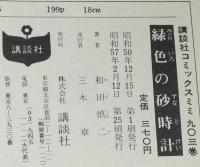 199p 18cm
講談社コミックスミミ九〇三巻
緑色の砂時計
すなどけい
定価 三七〇円
昭和50年12月15日 第1刷発行
昭和57年2月12日 第25刷発行
著者 和田慎二
発行者 三木章
発行所 株式会社 講談社
東京都文京区音羽
郵便番号 一一二
電話 東京
(大代表)
振替 東京八―三九三〇
講談社